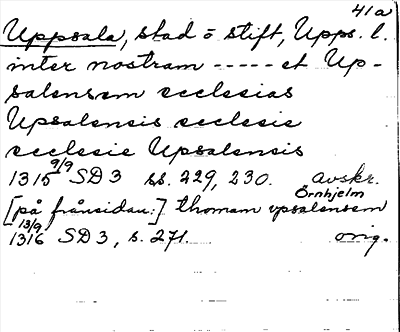 41a
Uppsala, stad o stift, Upps. l.
inter nostram ----- et Up-
salensem ecclesias
Upsalensis ecclesie
ecclesie Upsalensis
1315 9/9 SD 3 ss. 229, 230. Avskr. Örnhjelm
[på frånsidan:] thomam vpsalensem
1316 13/9 SD 3, s. 271. orig.